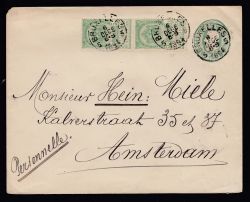 BRUXELLES
Monsieur Hein: Miele
Kalverstraat 35 et 37
Amsterdam
Personnelle